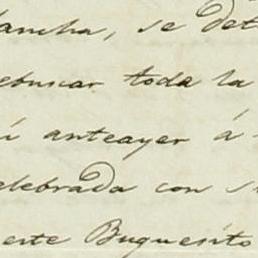 lancha, se det
ebuscar toda la
í anteayer á
elebrada con s
este Buquesito